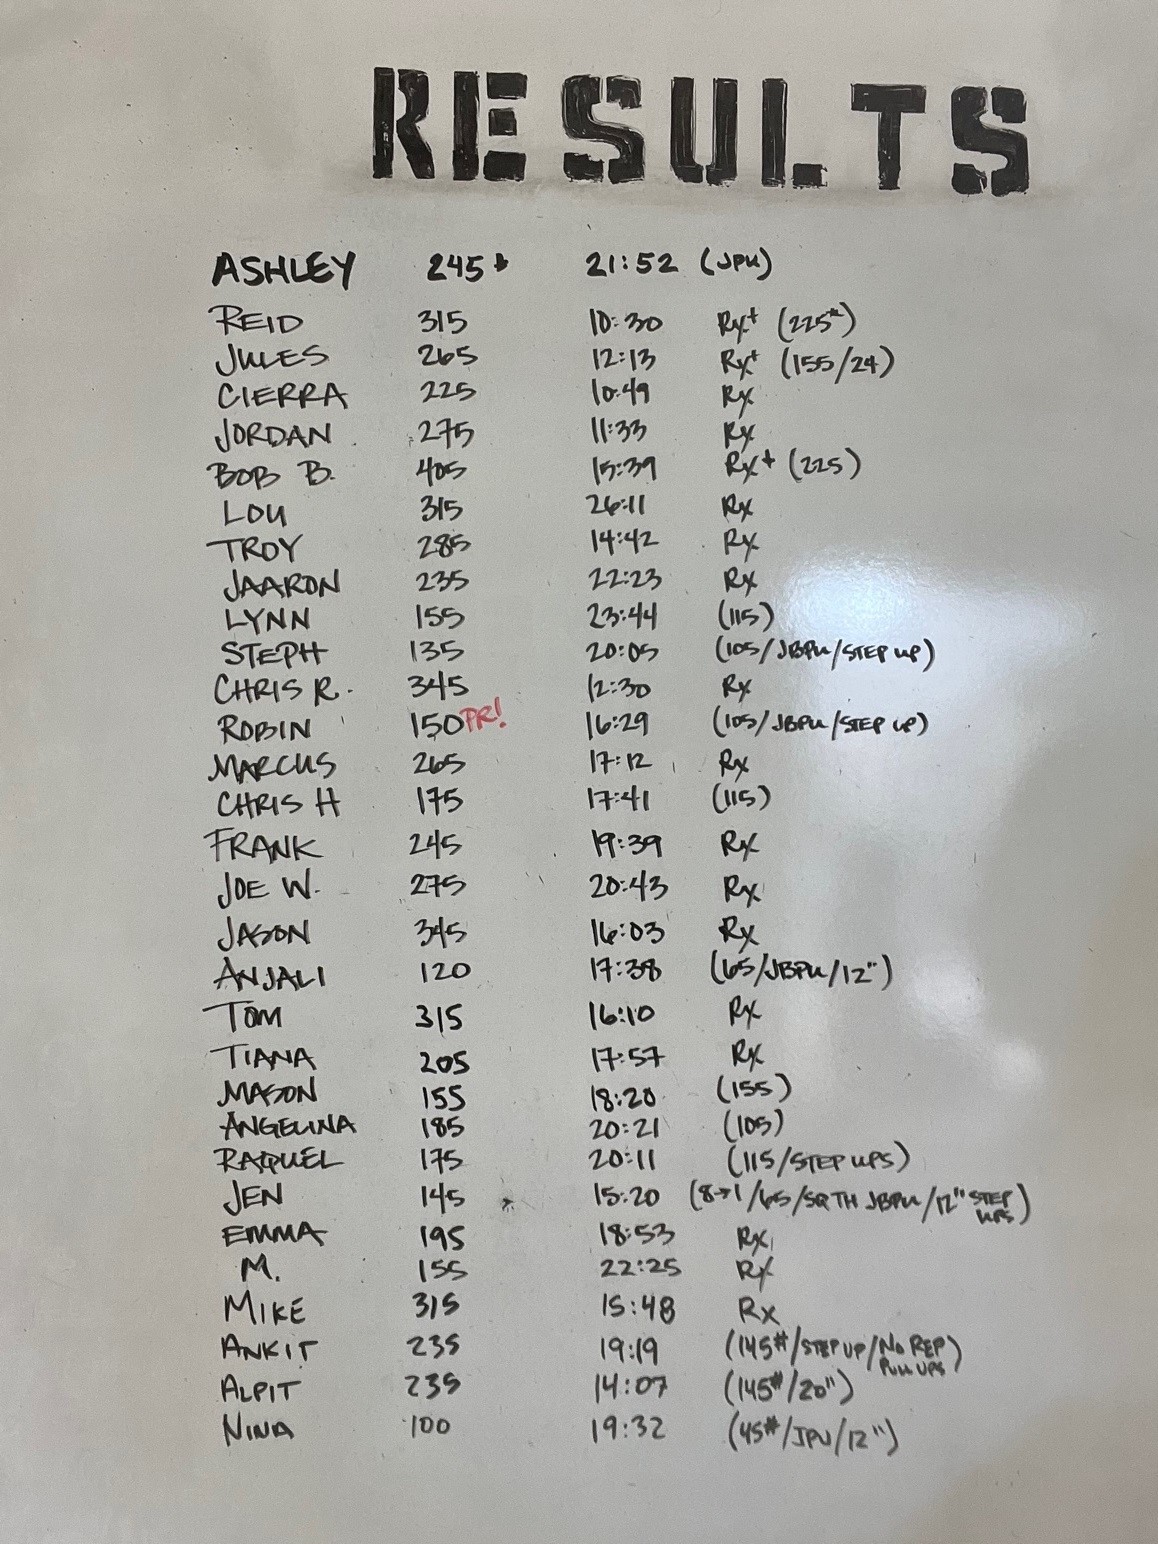 RESULTS
ASHLEY 245 21:52 (JPU)
REID 315 10:30 Rx+ (225#)
JULES 265 12:13 Rx+ (155/24)
CIERRA 225 10:49 Rx
JORDAN 275 11:33 Rx
BOB B. 405 15:39 Rx+ (225)
LOU 315 26:11 Rx
TROY 285 14:42 Rx
JAARON 235 22:23 Rx
LYNN 155 23:44 (115)
STEPH 135 20:05 (105/JBPU/STEP UP)
CHRIS R. 345 12:30 Rx
ROBIN 150 PR! 16:29 (105/JBPU/STEP UP)
MARCUS 265 17:12 Rx
CHRIS H 175 17:41 (115)
FRANK 245 19:39 Rx
JOE W. 275 20:43 Rx
JASON 345 16:03 Rx
ANJALI 120 17:38 (65/JBPU/12")
TOM 315 16:10 Rx
TIANA 205 17:57 Rx
MASON 155 18:20 (155)
ANGELINA 185 20:21 (105)
RAQUEL 175 20:11 (115/STEP UPS)
JEN 145 15:20 (8→1/65/SQ TH JBPU/12" STEP UPS)
EMMA 195 18:53 Rx
M. 155 22:25 Rx
MIKE 315 15:48 Rx
ANKIT 235 19:19 (145#/STEP UP/NO REP PULL UPS)
ALPIT 235 14:07 (145#/20")
NINA 100 19:32 (45#/JPU/12")